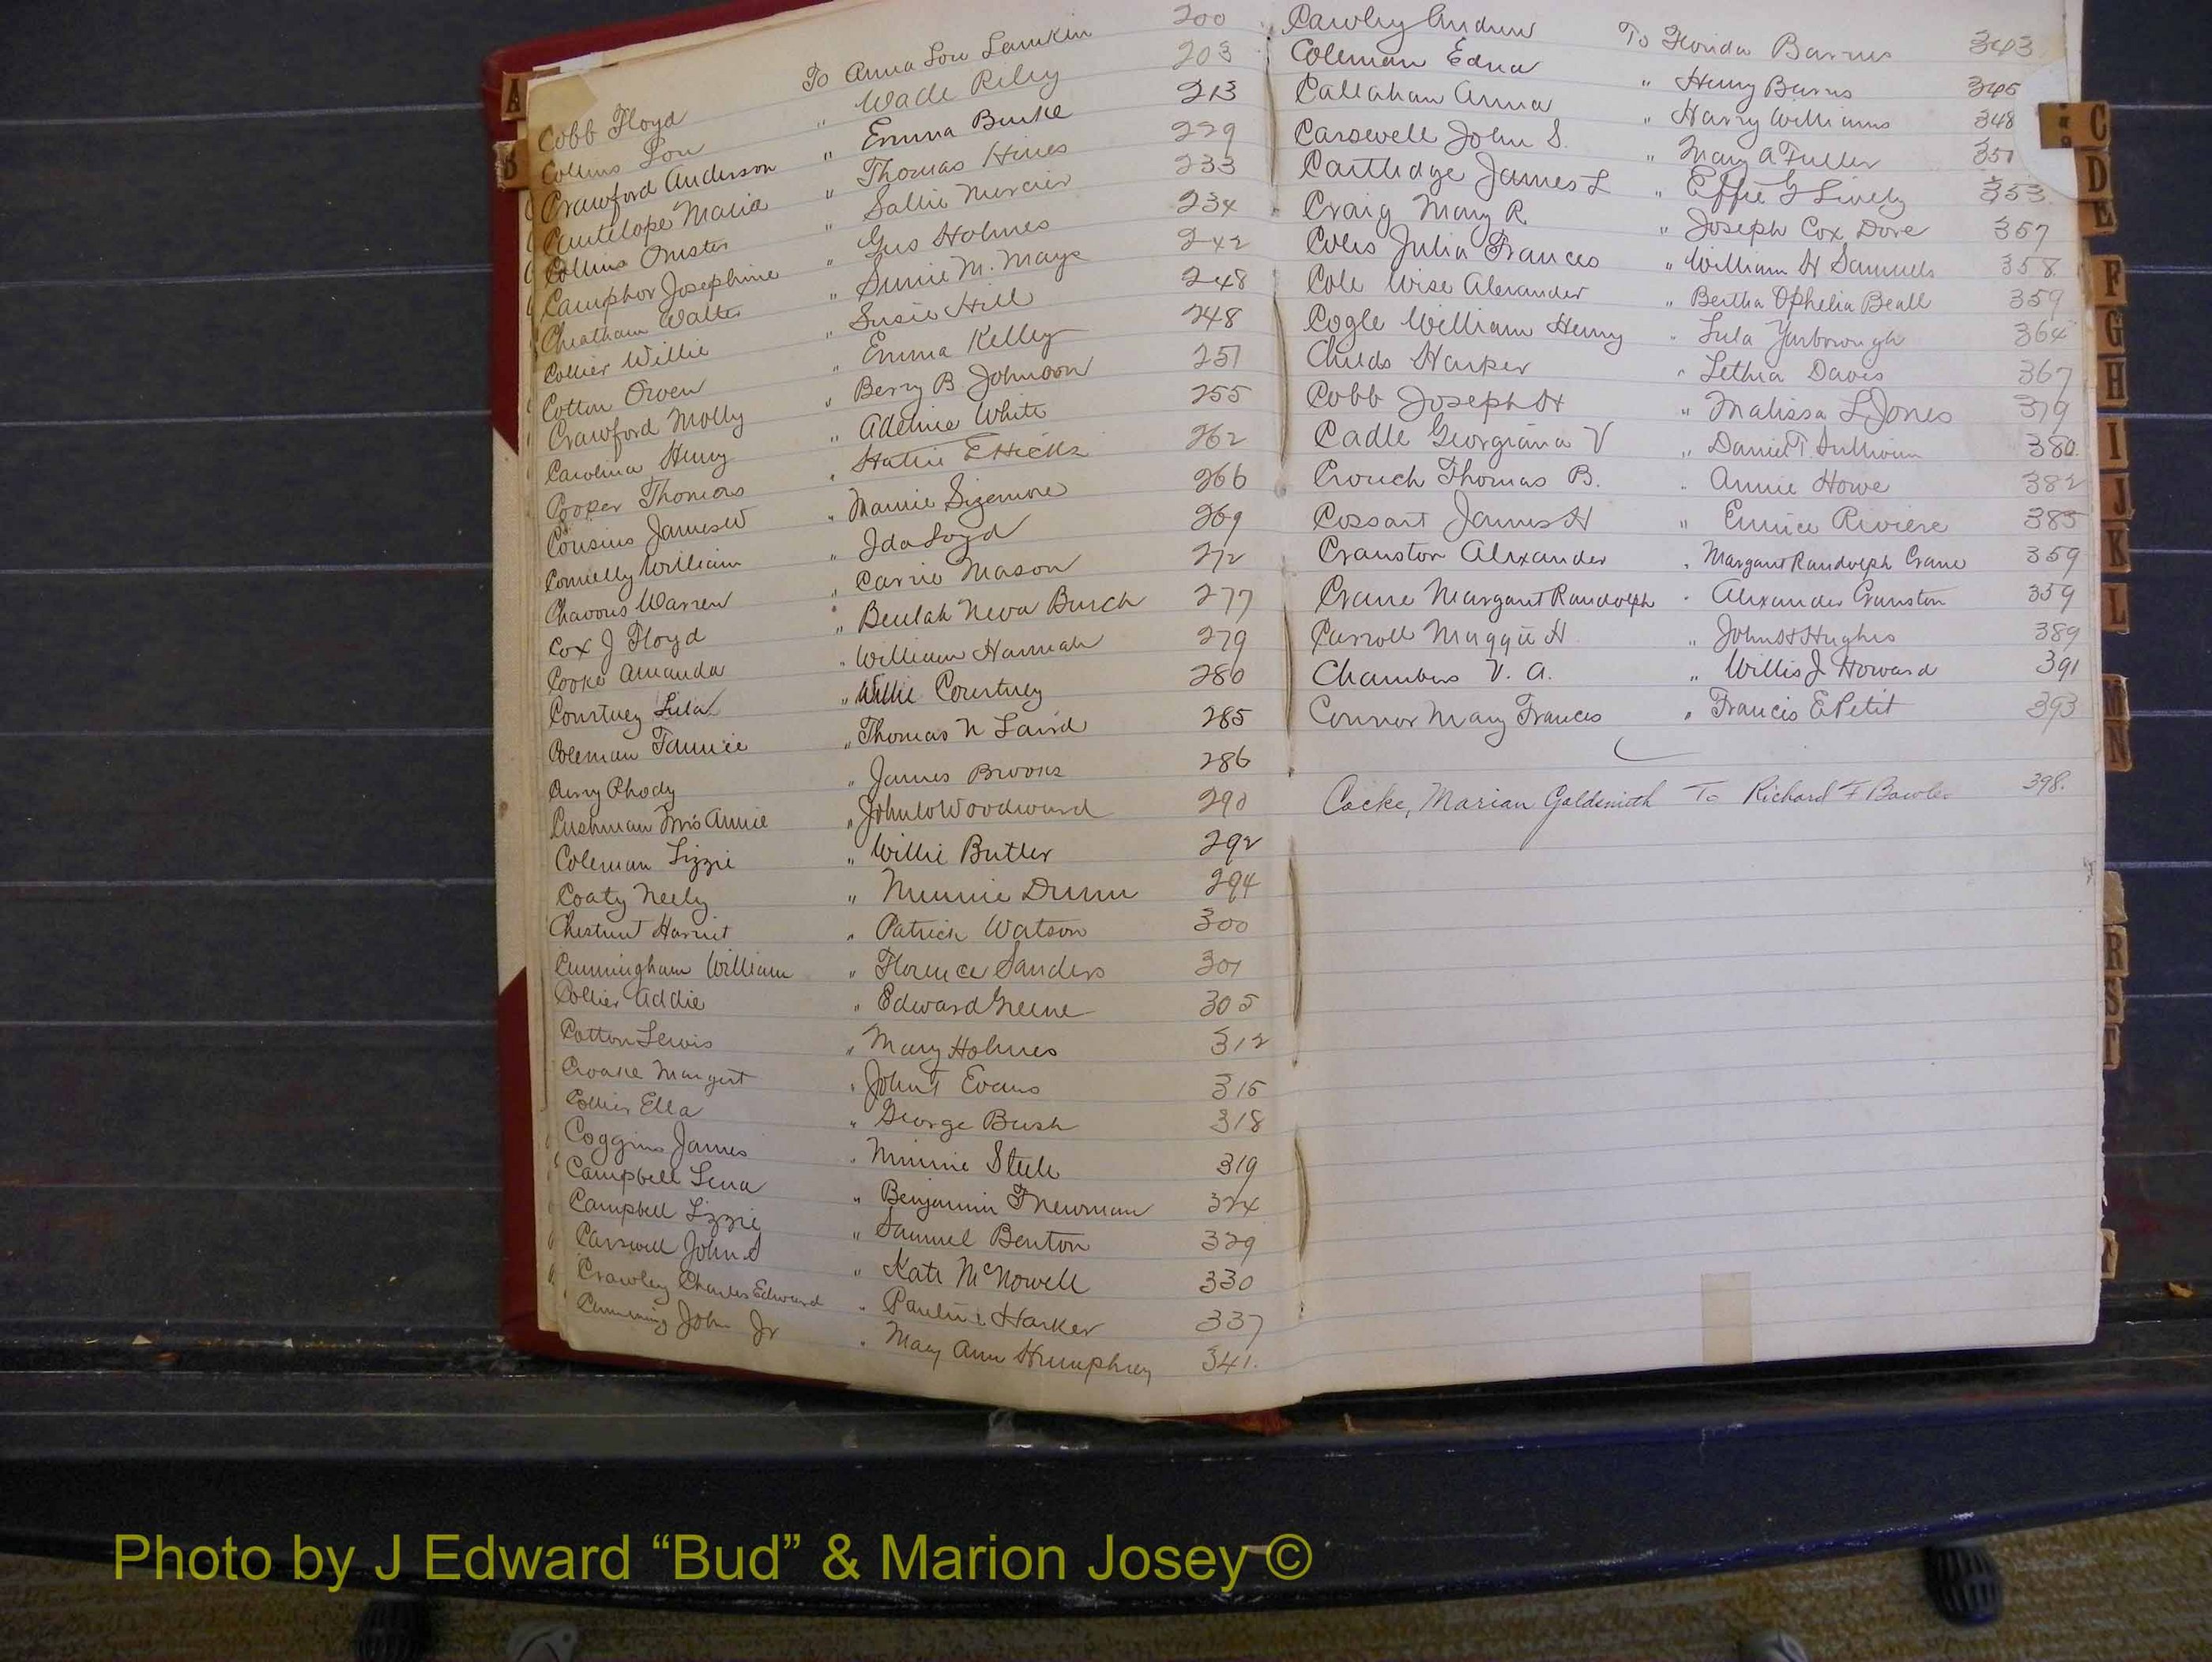 Cobb Floyd To Anna Lou Lamkin 200
Collins Lou " Wade Riley 203
Crawford Anderson " Emma Burke 213
Cantelope Maria " Thomas Hines 229
Collins Onister " Sallie Mercier 233
Camphor Josephine " Gus Holmes 234
Cheatham Walter " Annie M. Mays 242
Collier Willie " Susie Hill 248
Cotton Owen " Emma Kelley 248
Crawford Molly " Berry B. Johnson 251
Carolina Henry " Adeline White 255
Cooper Thomas " Hattie E Hicks 262
Cousins James W " Mamie Sizemore 266
Connelly William " Ida Loyd 269
Chavous Warren " Carrie Mason 272
Cox J Floyd " Beulah Neva Burch 277
Cooke Amanda " William Hannah 279
Courtney Lula " Willie Courtney 280
Coleman Fannie " Thomas N Laird 285
Curry Rhody " James Brooks 286
Cushman Mrs Annie " John W Woodward 290
Coleman Lizzie " Willie Butler 292
Coaty Neely " Minnie Dunn 294
Chestnut Harriet " Patrick Watson 300
Cunningham William " Florence Sanders 301
Collier Addie " Edward Greene 305
Cotton Lewis " Mary Holmes 312
Croake Margert " John T Evans 315
Collier Ella " George Bush 318
Coggins James " Minnie Steele 319
Campbell Lena " Benjamin F Newman 324
Campbell Lizzie " Samuel Benton 329
Carswell John S " Kate McNowell 330
Crawley Charles Edward " Pauline Harker 337
Cumming John Jr " Mary Ann Humphrey 341.
Cawley Andrew To Florida Barnes 343
Coleman Edna " Henry Burns 345
Callahan Anna " Harry Williams 348
Carswell John S. " Mary A Fuller 351
Cartledge James L " Effie G Lively 353
Craig Mary R. " Joseph Cox Dove 357
Coles Julia Frances " William H Samuels 358
Cole Wise Alexander " Bertha Ophelia Beall 359
Cogle William Henry " Lula Yarborough 364
Childs Harper " Lethia Davis 367
Cobb Joseph H " Malissa L Jones 379
Cadle Georgiana V " Daniel T. Sullivan 380.
Crouch Thomas B. " Annie Howe 382
Cossart James H " Eunice Riviere 385
Cranston Alexander " Margaret Randolph Crane 359
Crane Margaret Randolph " Alexander Cranston 359
Carroll Maggie H " John H Hughes 389
Chambers V. A. " Willis J Howard 391
Connor Mary Frances " Francis E Petit 393
Cocke, Marian Goldsmith To Richard F Bowles 398.
A
B
C
D
E
F
G
H
I
J
K
L
M
N
R
S
T
Photo by J Edward “Bud” & Marion Josey ©